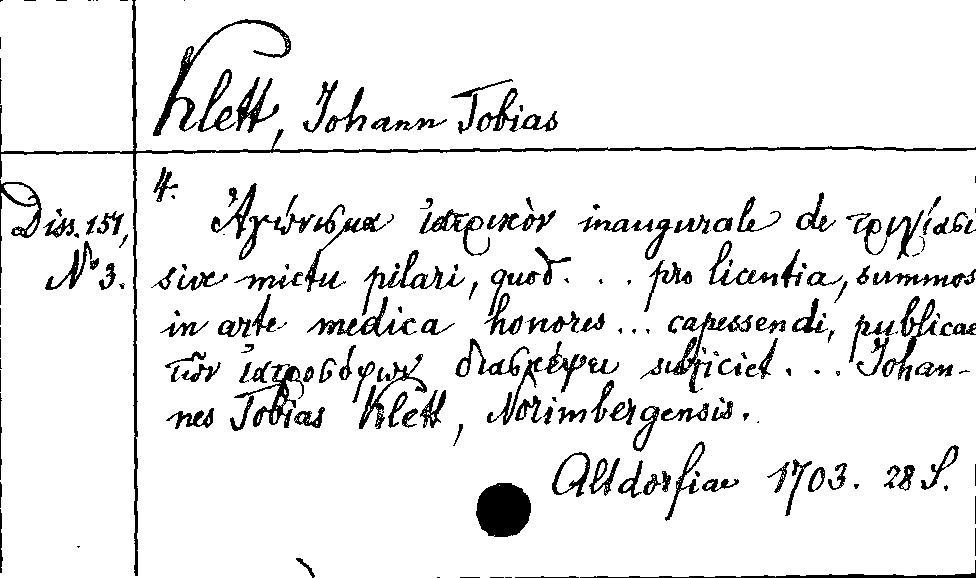 Klett, Johann Tobias
4.
Diss. 151, Ἀγώνισμα ἰατρικὸν inaugurale de τριχίασι
No 3. sive mictu pilari, quod . . . pro licentia, summos
in arte medica honores ... capessendi, publicae
τῶν ἰατροσόφων διασκέψει subjiciet . . . Johan-
nes Tobias Klett, Norimbergensis.
Altdorfiae 1703. 28 S.